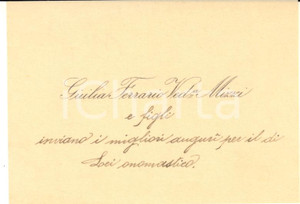 Giulia Ferrario Ved. Mizzi
e figli
inviano i migliori auguri per il di
Lei onomastico.